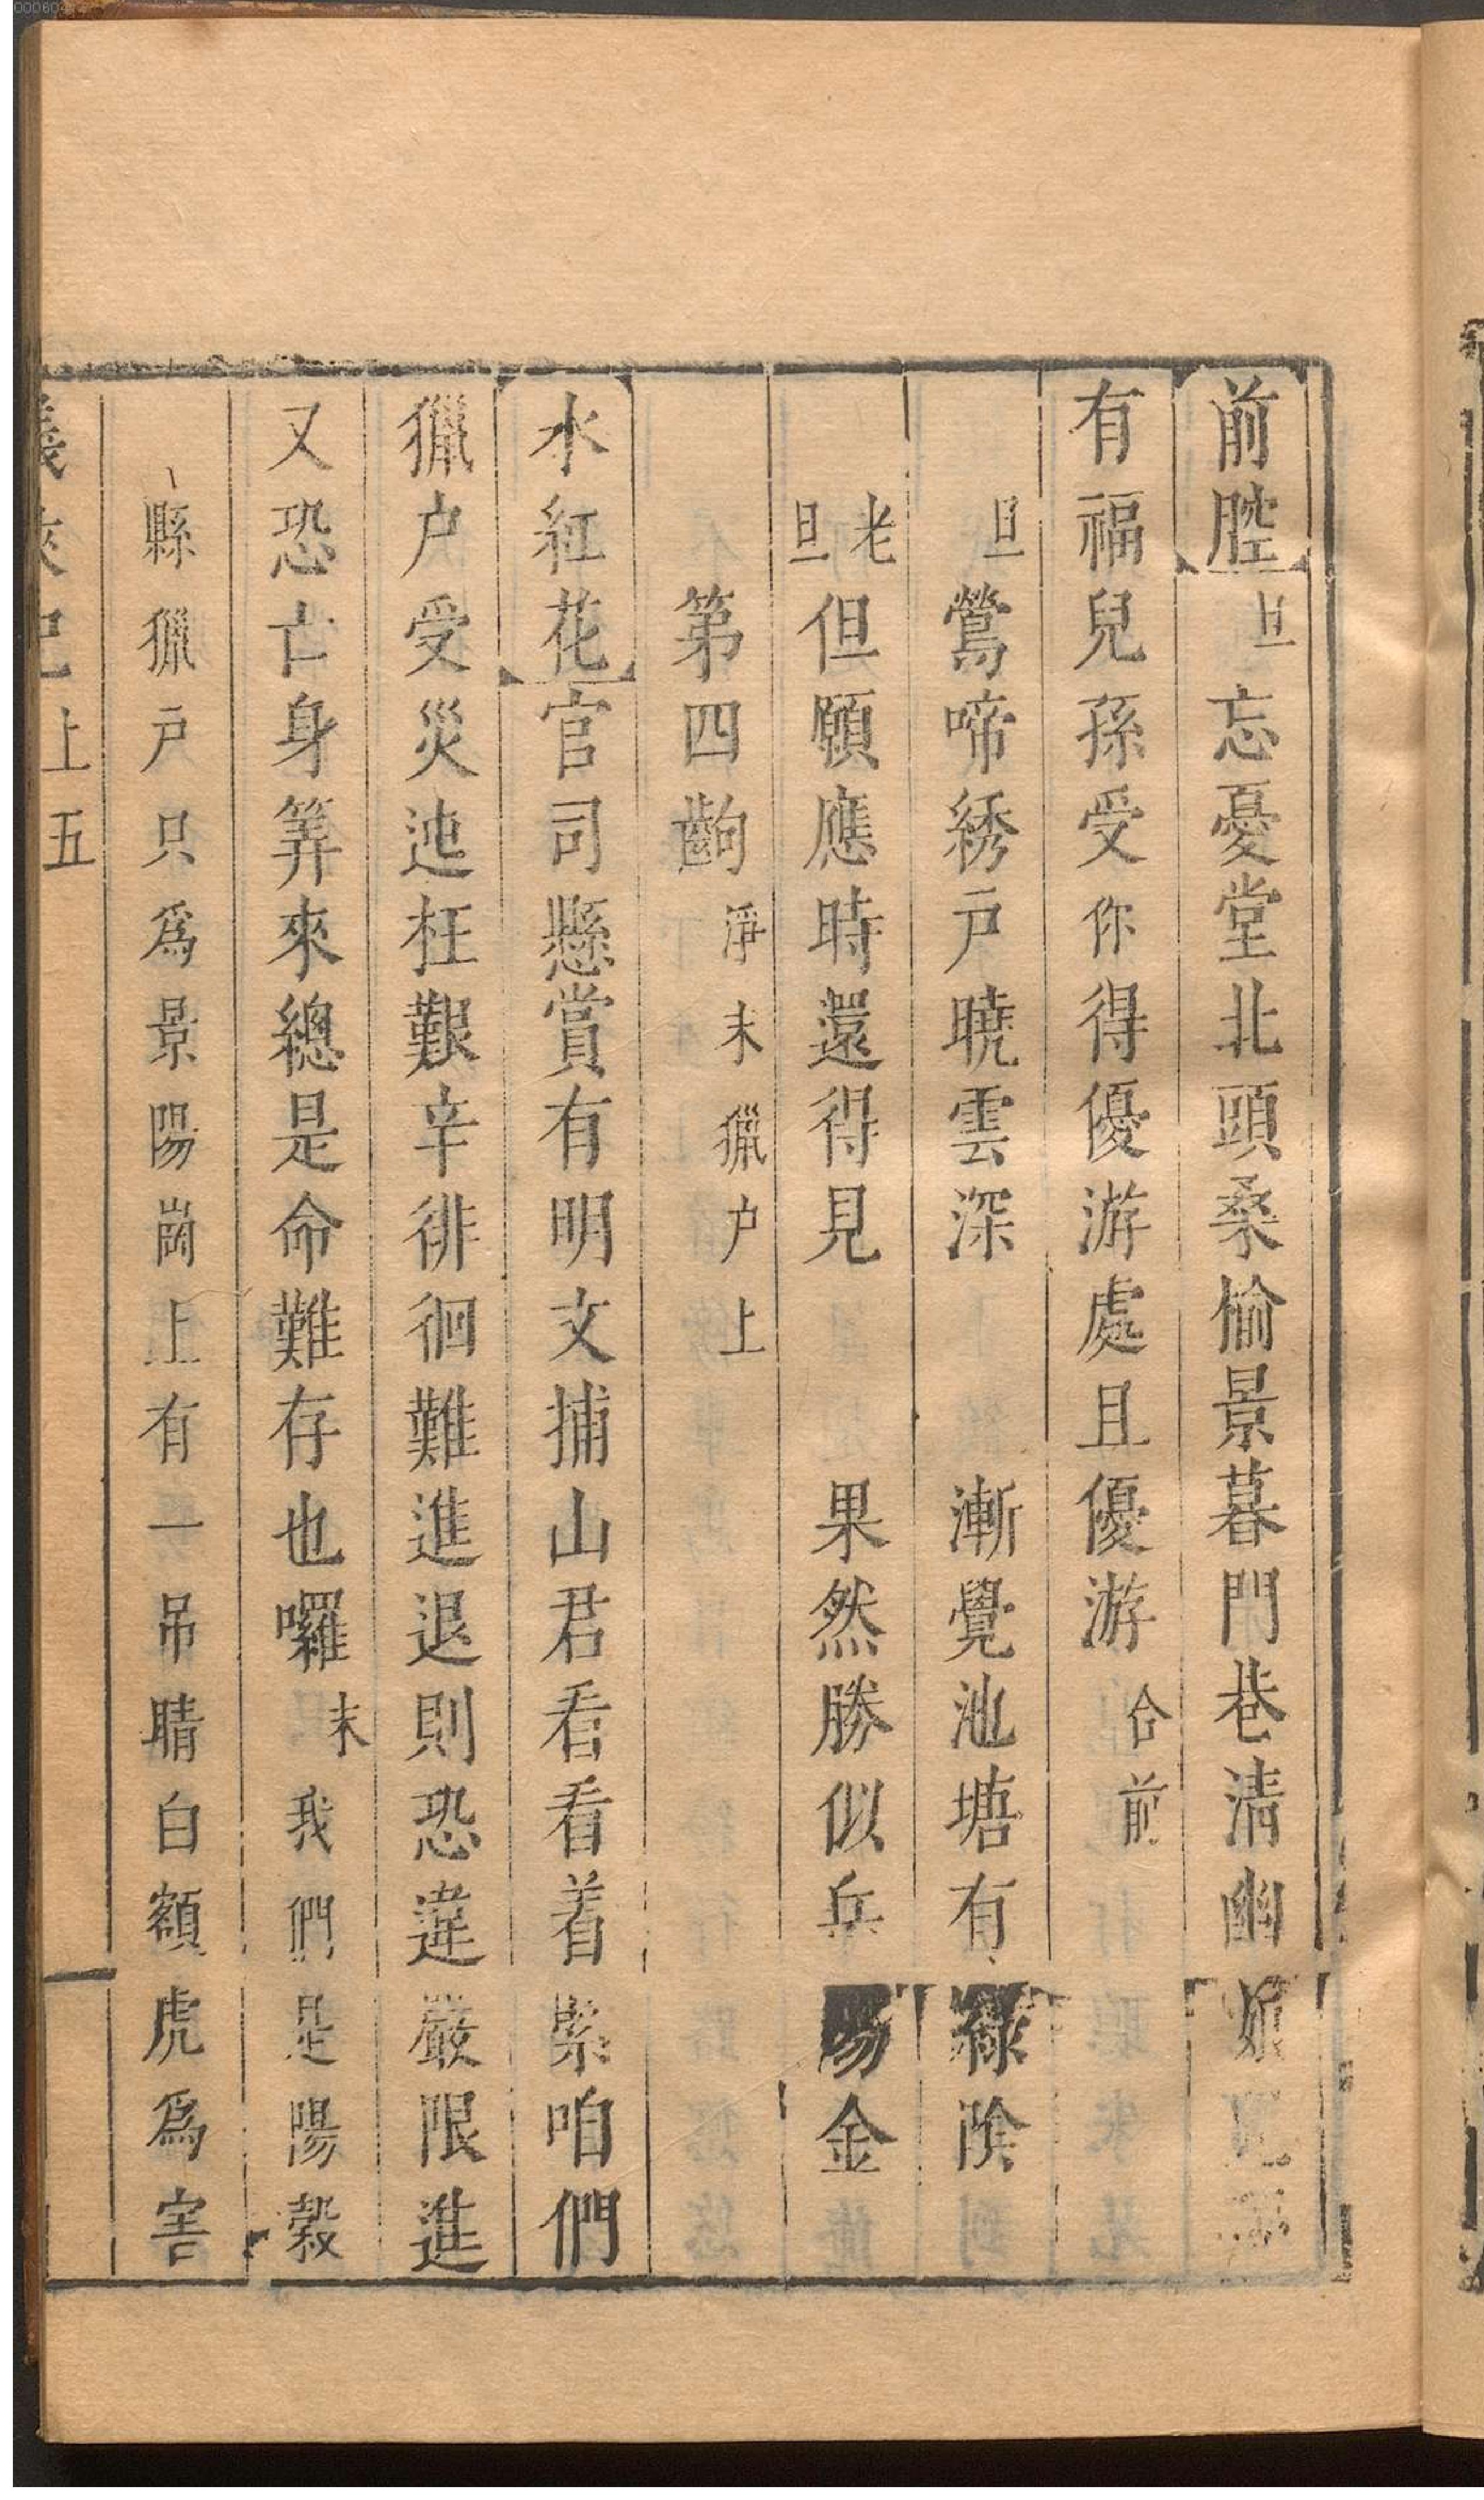 前腔旦忘憂堂北頭桑愉景暮門巷清幽娘
有福兒孫受你得優游處且優游合前
旦鶯啼綉戶曉雲深　漸覺池塘有綠陰
老旦但願應時還得見　果然勝似兵陽金
第四齣淨末獵户上
水紅花官司懸賞有明文捕山君看看着緊咱們
獵户受災迍枉艱辛徘徊難進退則恐違嚴限進
又恐亡身筭來總是命難存也囉末我們是陽穀
縣獵戸只爲景陽崗上有一吊睛白額虎爲害
義俠記上五